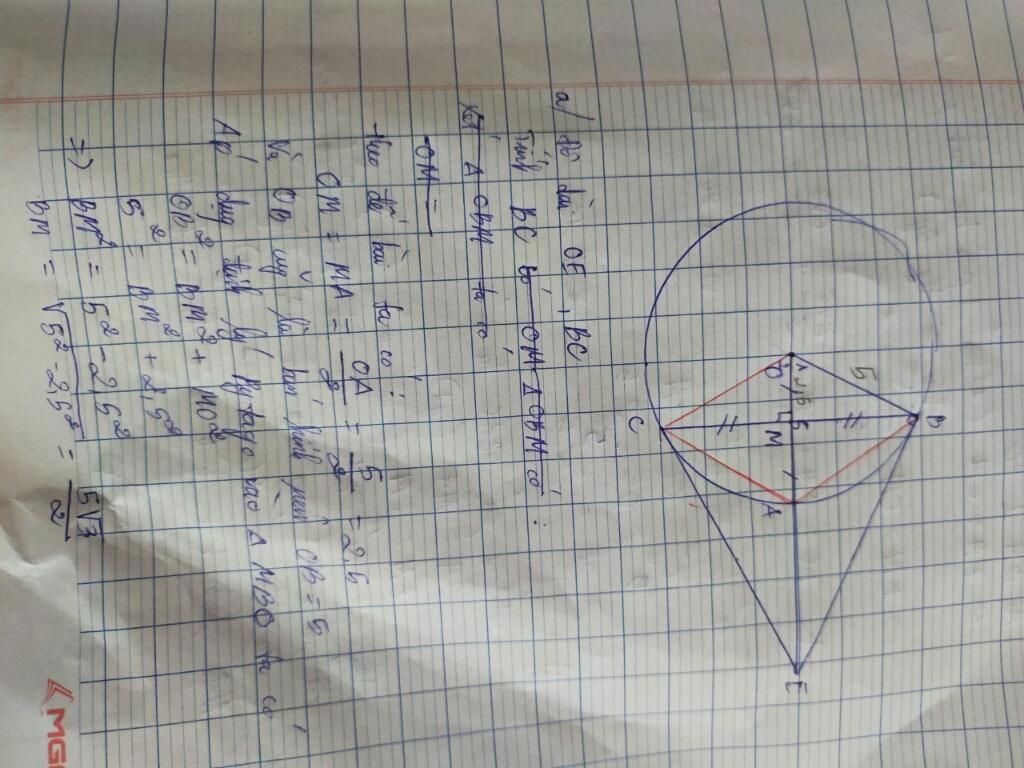 B
5
O
2,5
M
C
A
E
a/ độ dài OE, BC
Tính BC
Xét Δ OBM ta có
OM =
theo đề bài ta có:
OM = MA = OA/2 = 5/2 = 2,5
Vì OB cũng là bán kính nên OB = 5
Áp dụng định lý Pytago vào Δ MBO ta có
OB² = BM² + MO²
5² = BM² + 2,5²
=> BM² = 5² - 2,5²
BM = √5² - 2,5² = 5√3/2